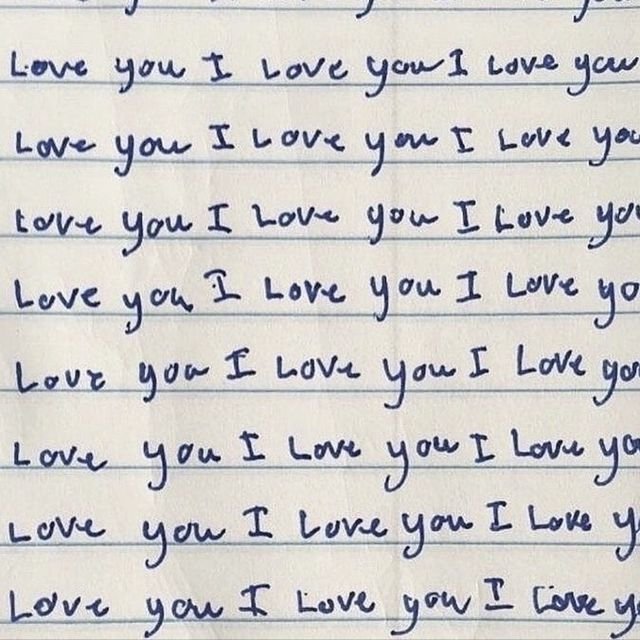 Love you I Love you I Love you
Love you I Love you I Love you
Love you I Love you I Love you
Love you I Love you I Love yo
Love you I Love you I Love you
Love you I Love you I Love yo
Love you I Love you I Love y
Love you I Love you I Love y